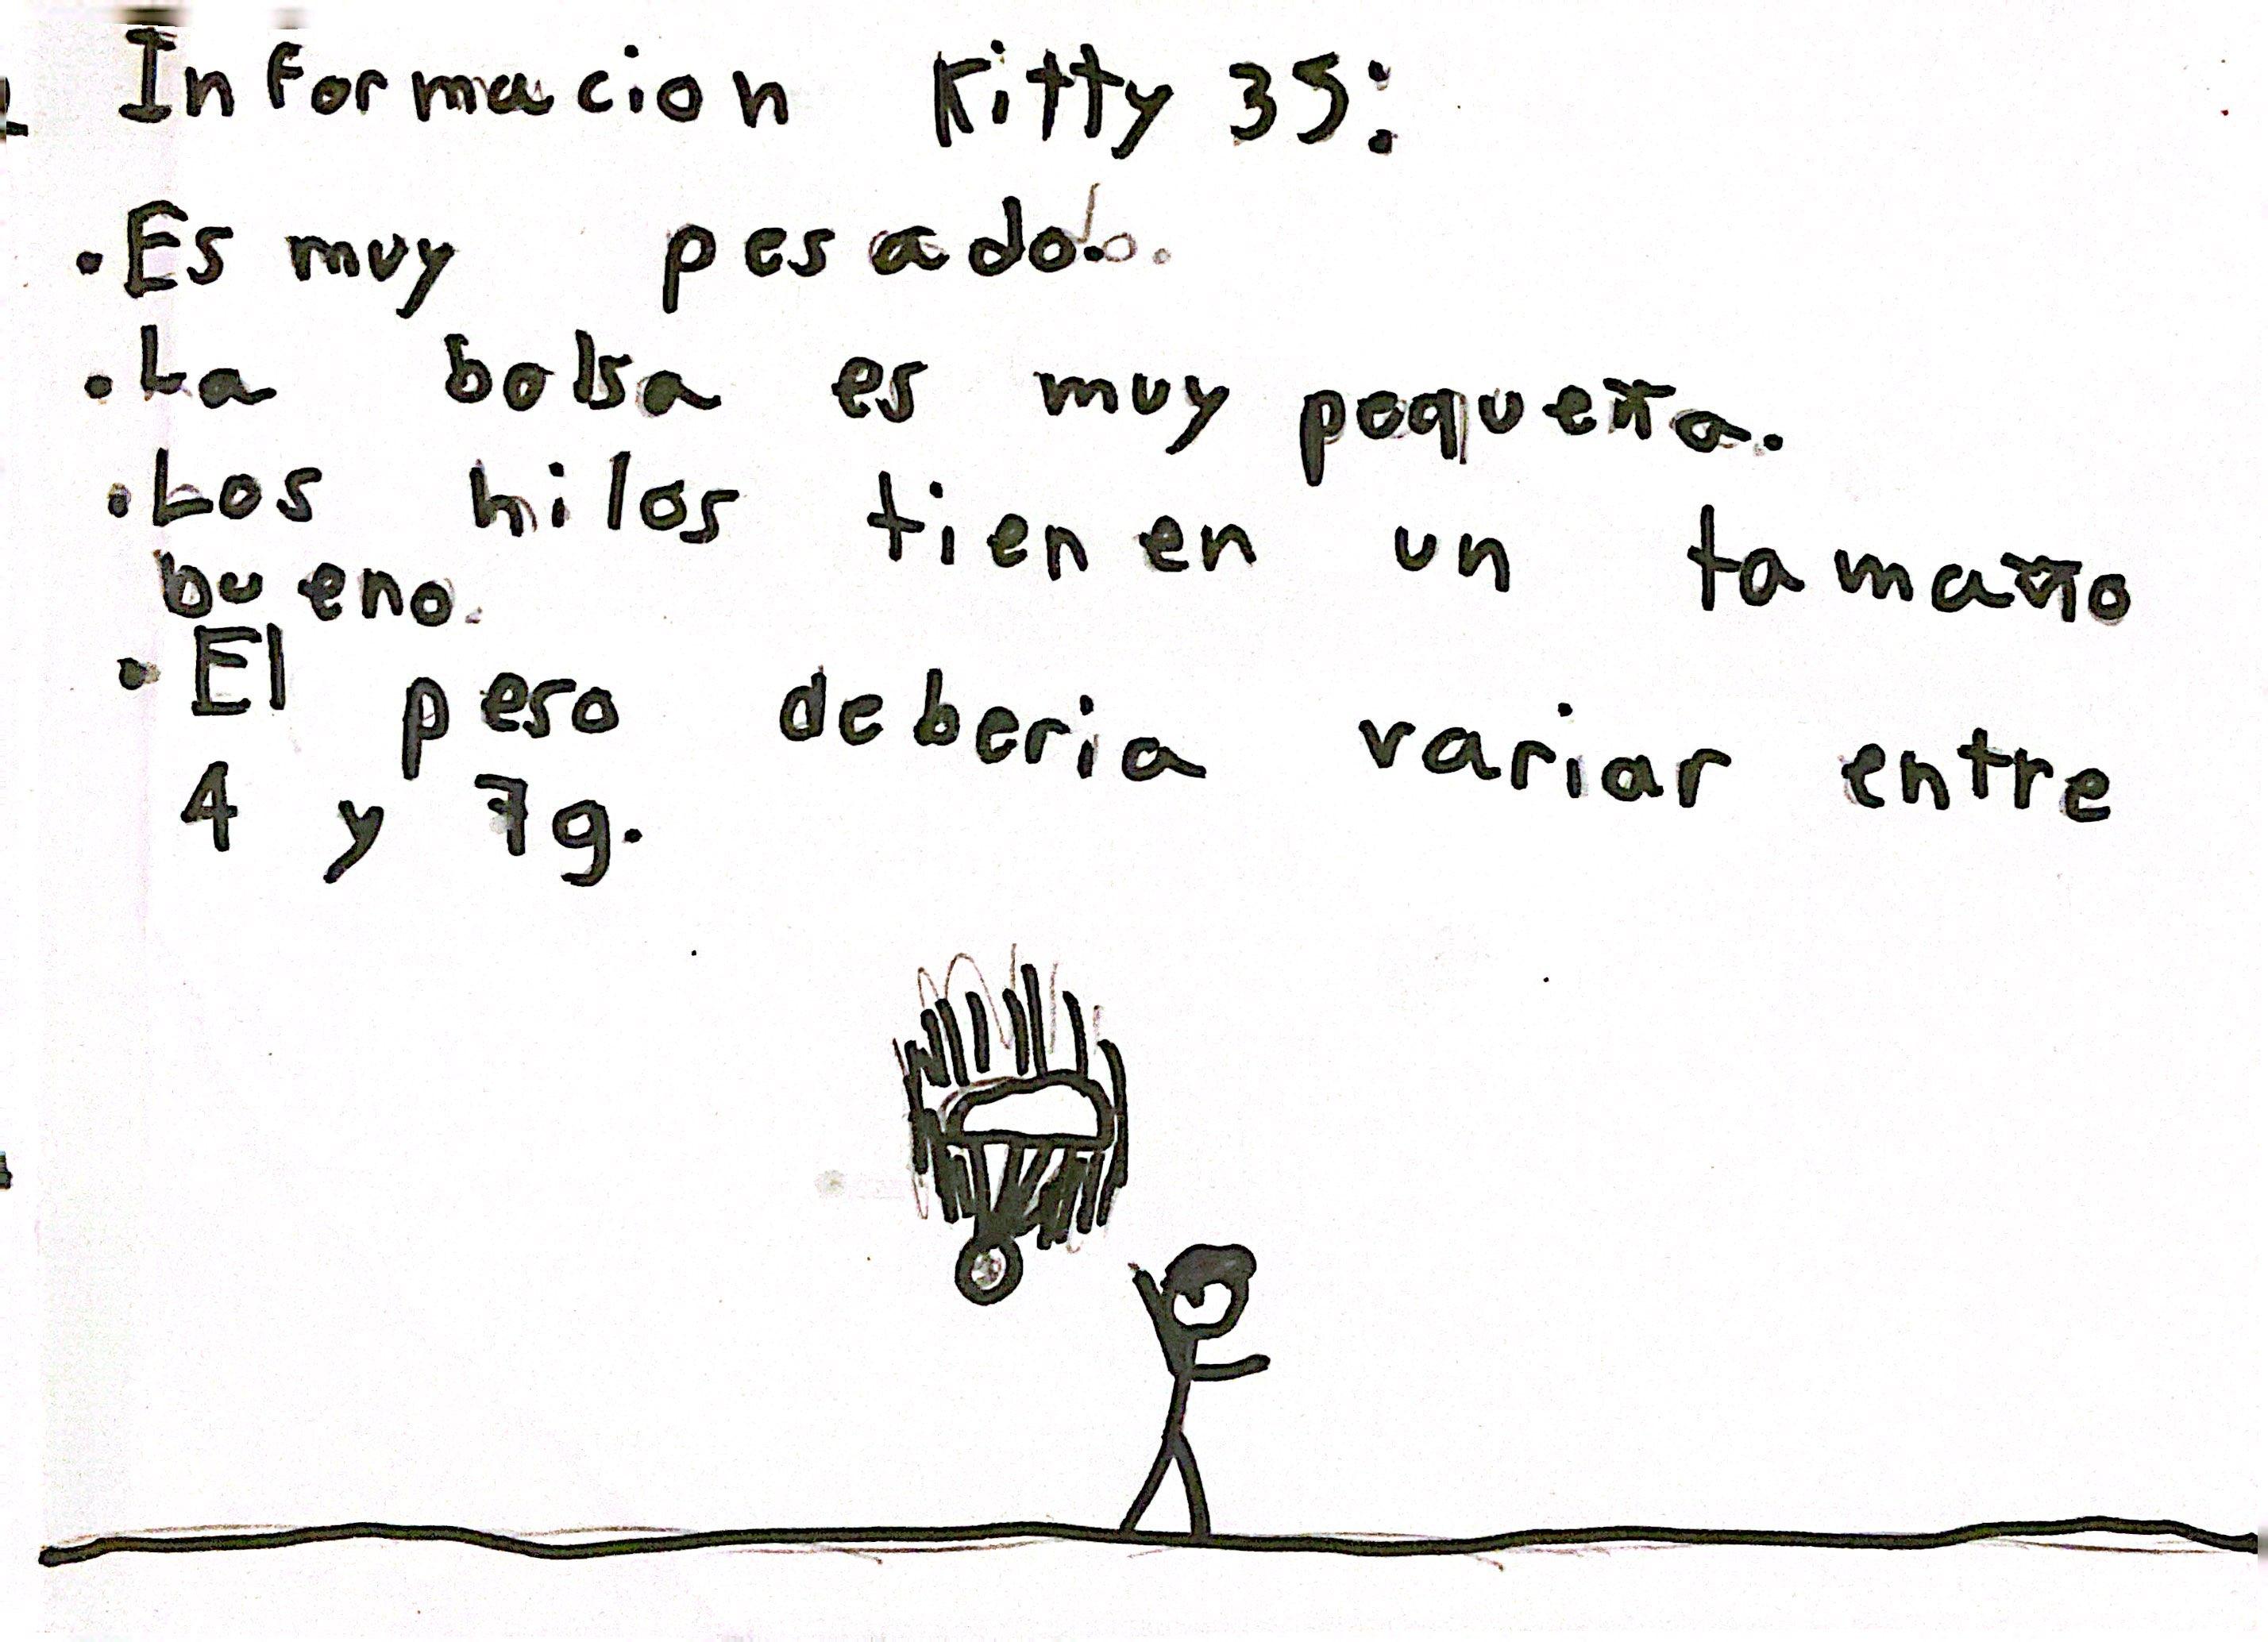 Informacion Kitty 35:
• Es muy pesado.
• La bolsa es muy pequeña.
• Los hilos tienen un tamaño
bueno.
• El peso deberia variar entre
4 y 7g.